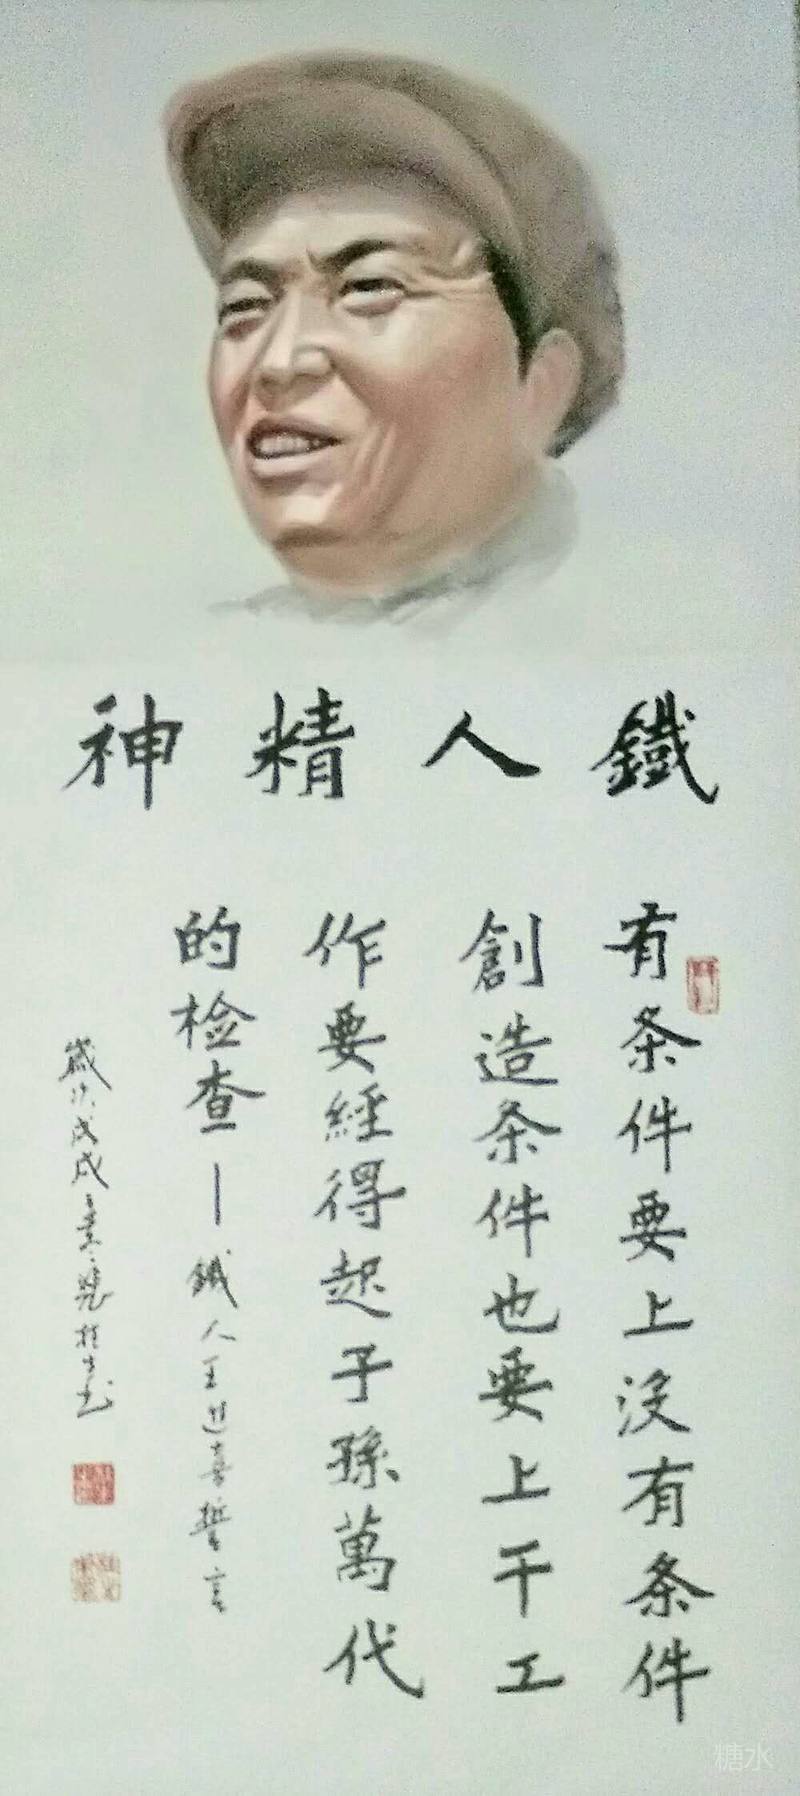 鐵人精神
有条件要上没有条件
創造条件也要上干工
作要經得起子孫萬代
的检查—鐵人王进喜誓言
歲次戊戌
糖水